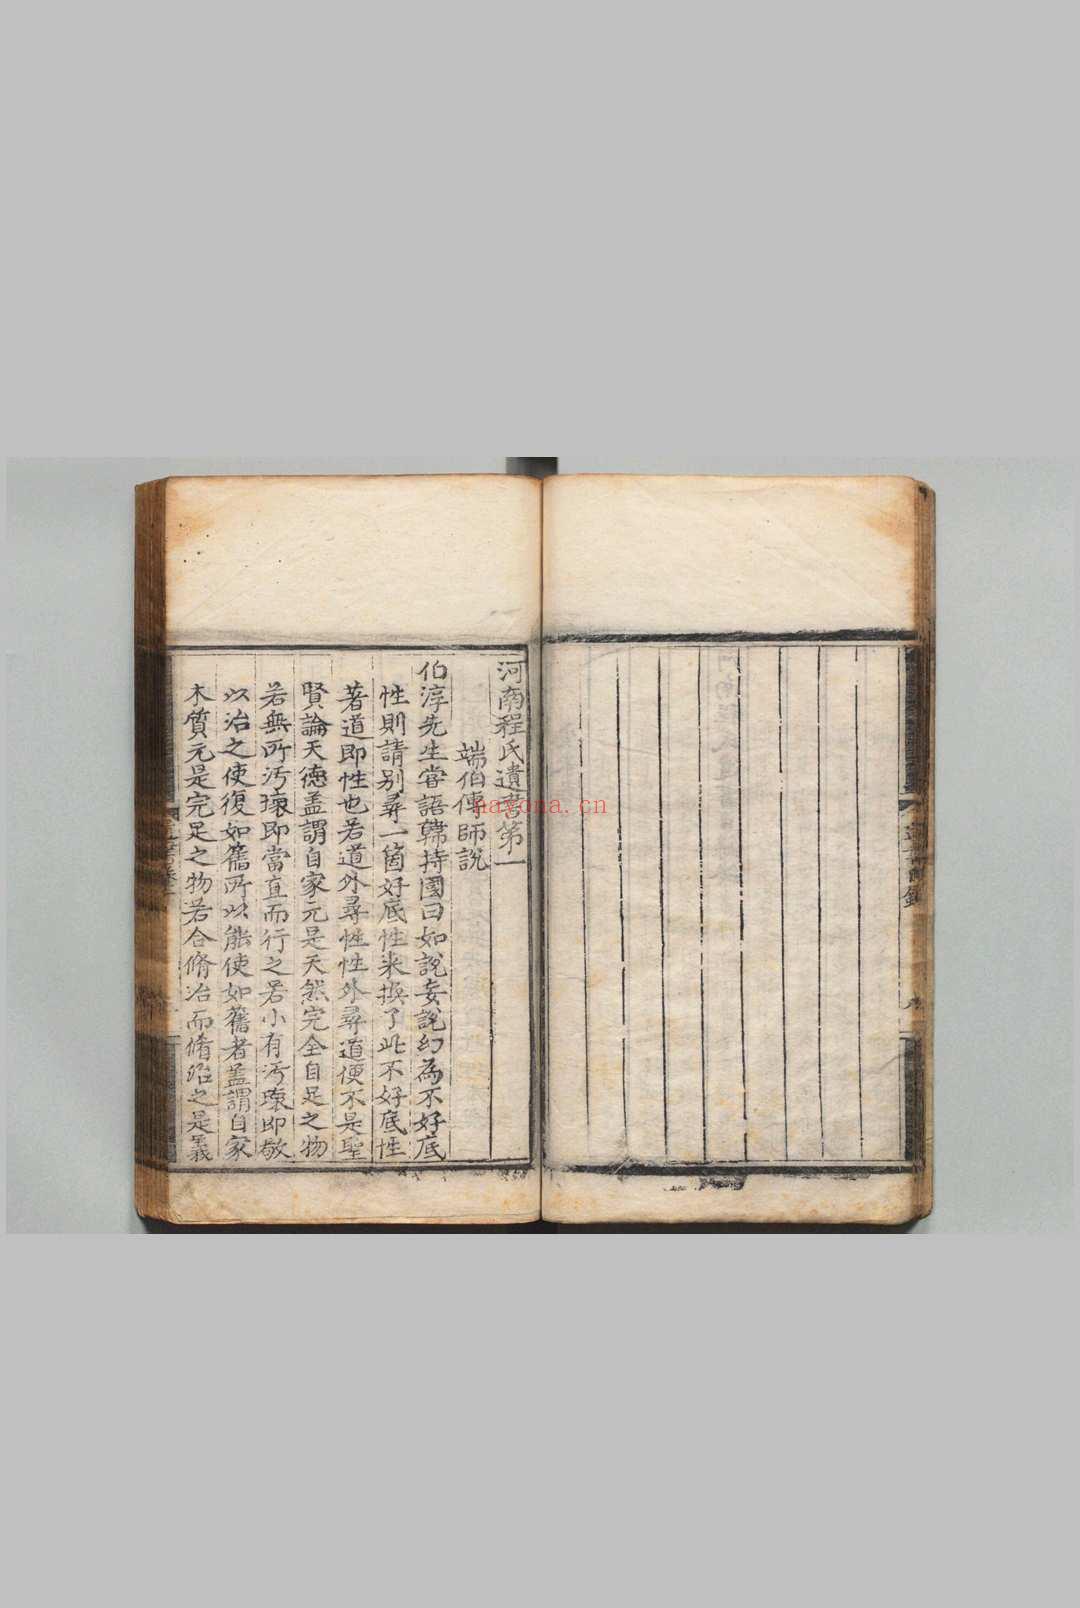 河南程氏遺書第一
端伯傳師說
伯淳先生嘗語韓持國曰如說妄說幻為不好底
性則請别尋一箇好底性来換了此不好底性
著道即性也若道外尋性性外尋道便不是聖
賢論天德盖謂自家元是天然完全自足之物
若無所汚壞即當直而行之若小有汚壞即敬
以治之使復如舊所以能使如舊者盖謂自家
本質元是完足之物若合脩治而脩治之是義
nayona.cn